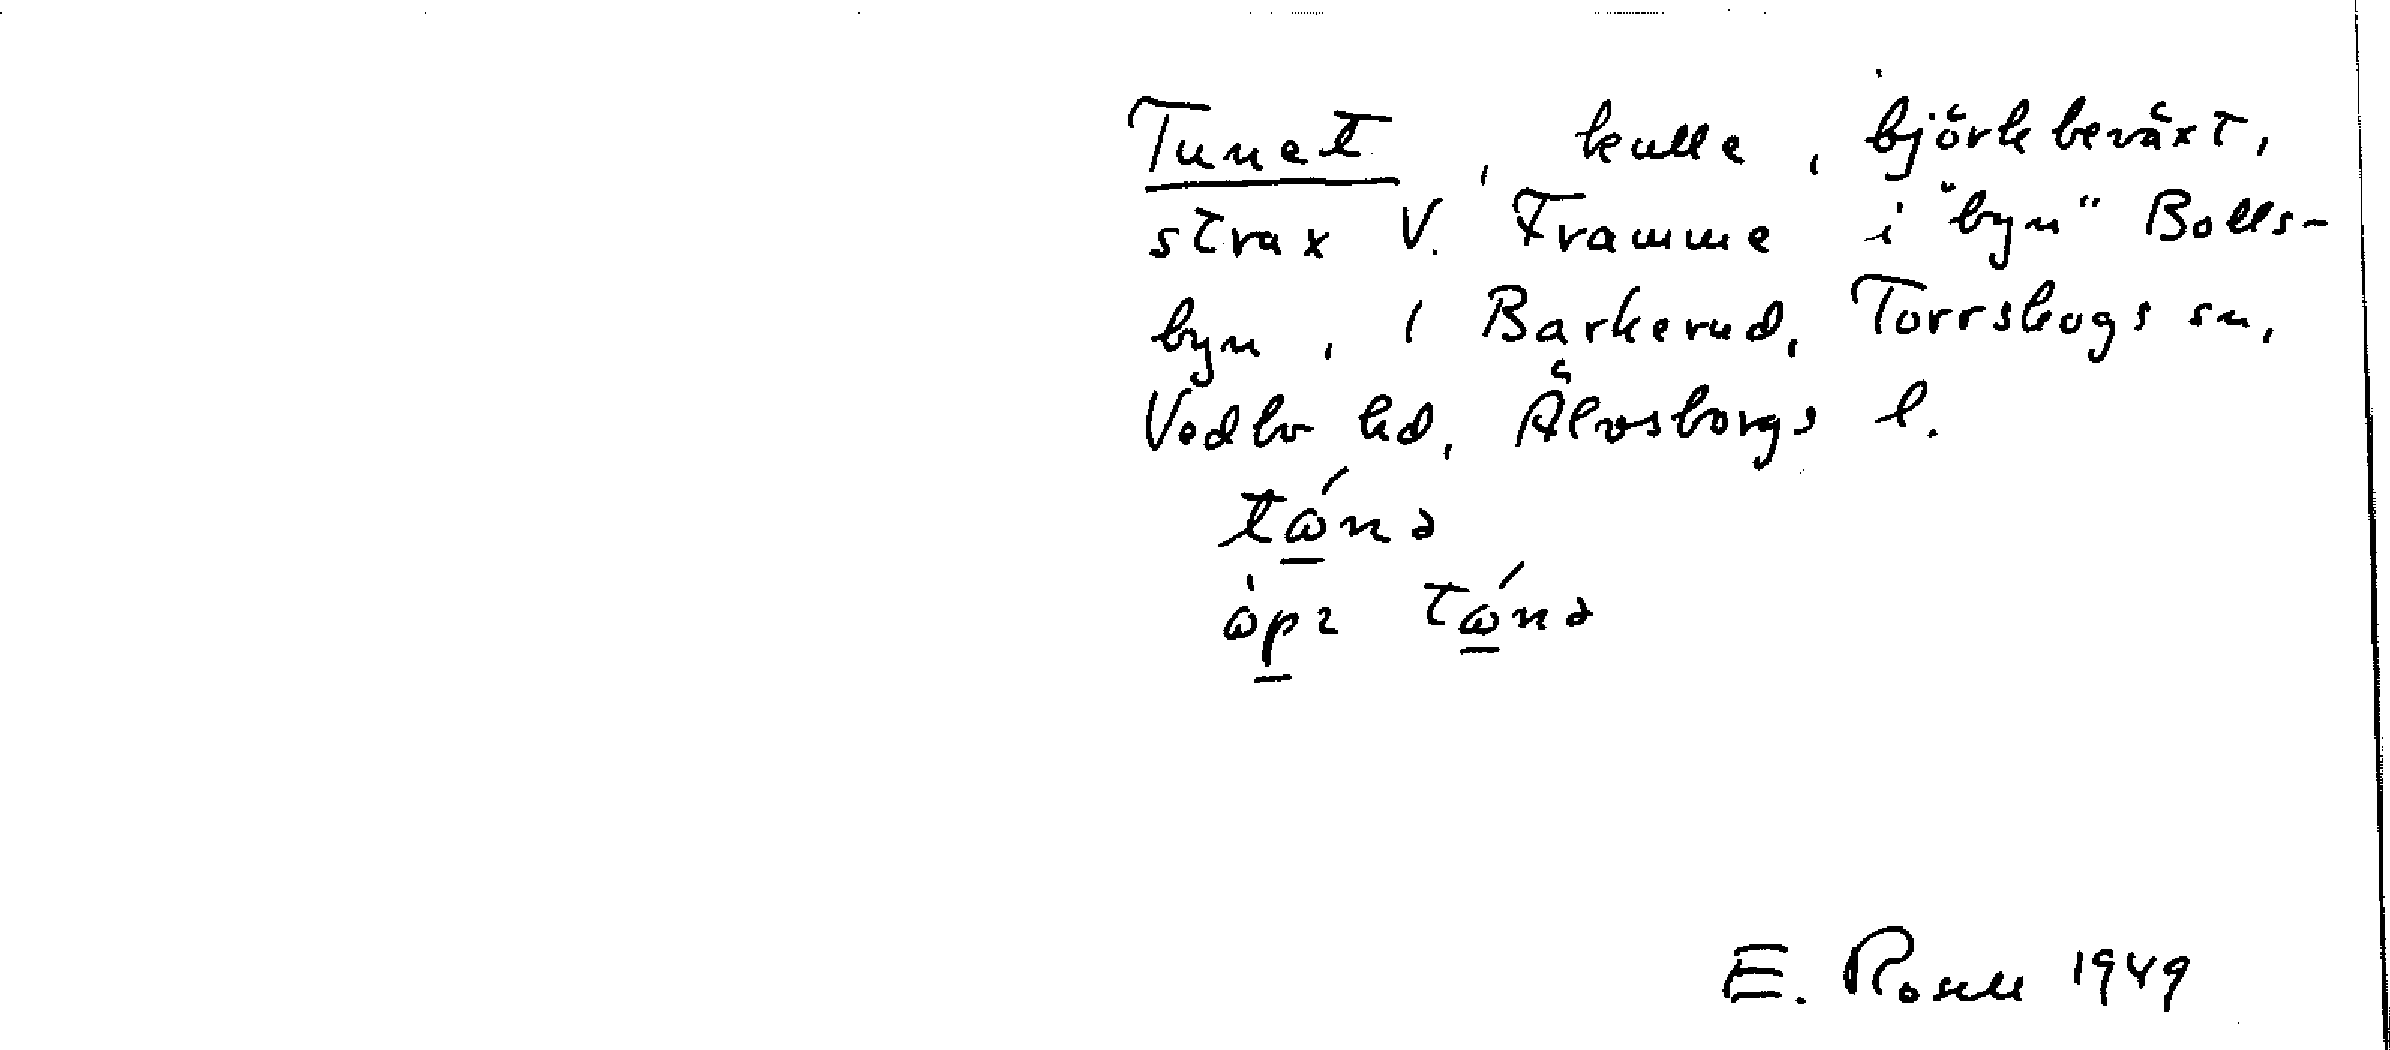 Tunet, kulle, björkbeväxt,
strax V. Framme i "byn" Bolls-
byn, i Barkerud, Torrskogs sn,
Vedbo hd, Älvsborgs l.
tώ̲nə
ὼp̲ɿ tώ̲nə
E. Rosell 1949